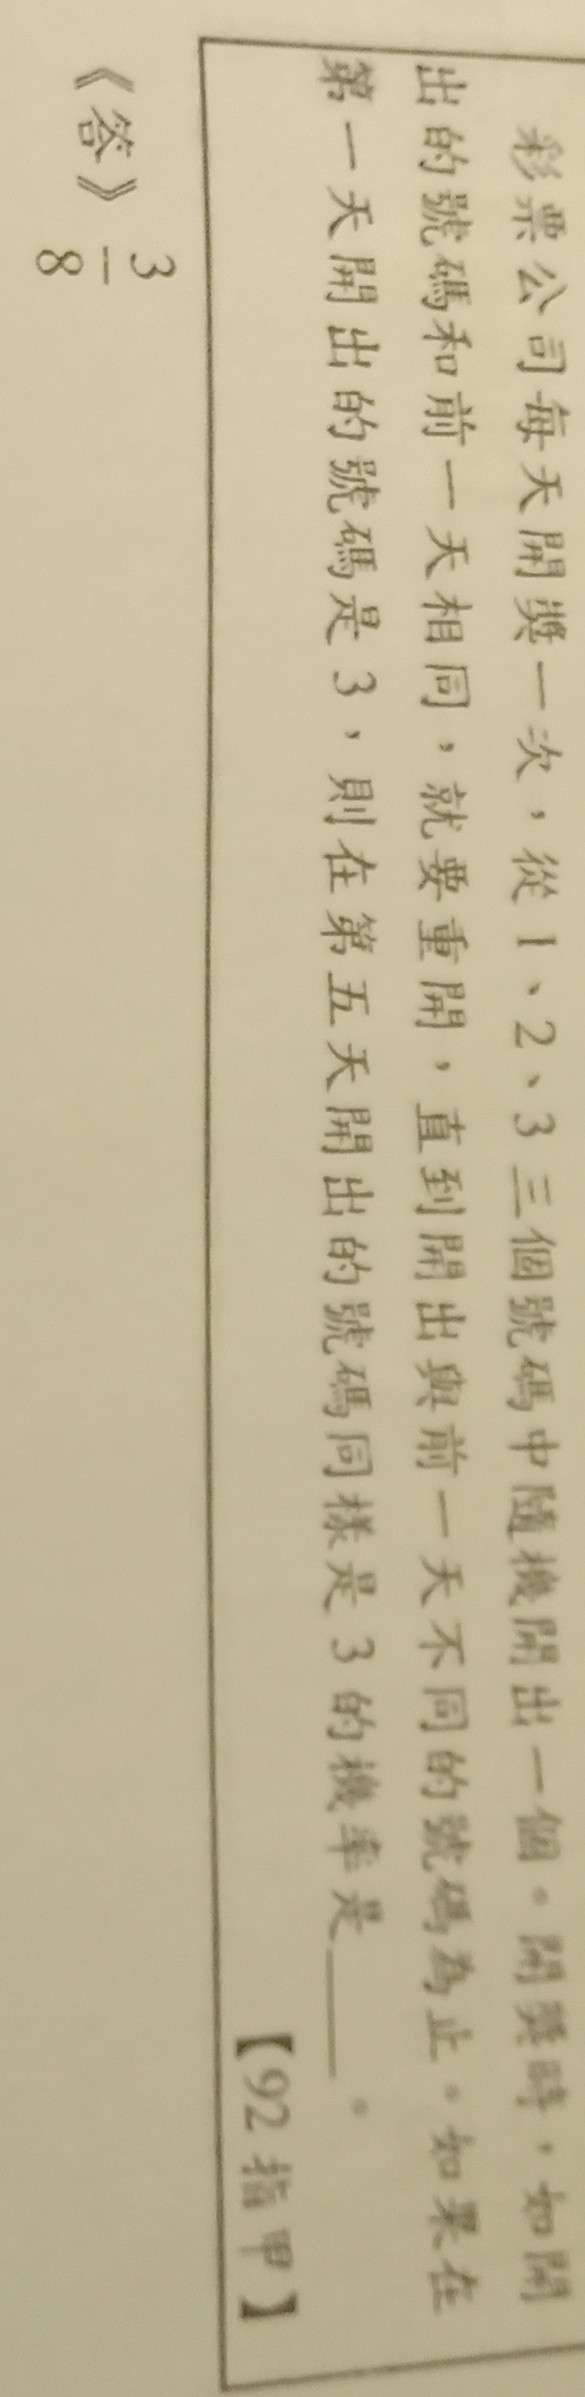 彩票公司每天開獎一次，從1、2、3三個號碼中隨機開出一個。開獎時，如開
出的號碼和前一天相同，就要重開，直到開出與前一天不同的號碼為止。如果在
第一天開出的號碼是3，則在第五天開出的號碼同樣是3的機率是____。
【92指甲】
《答》3/8